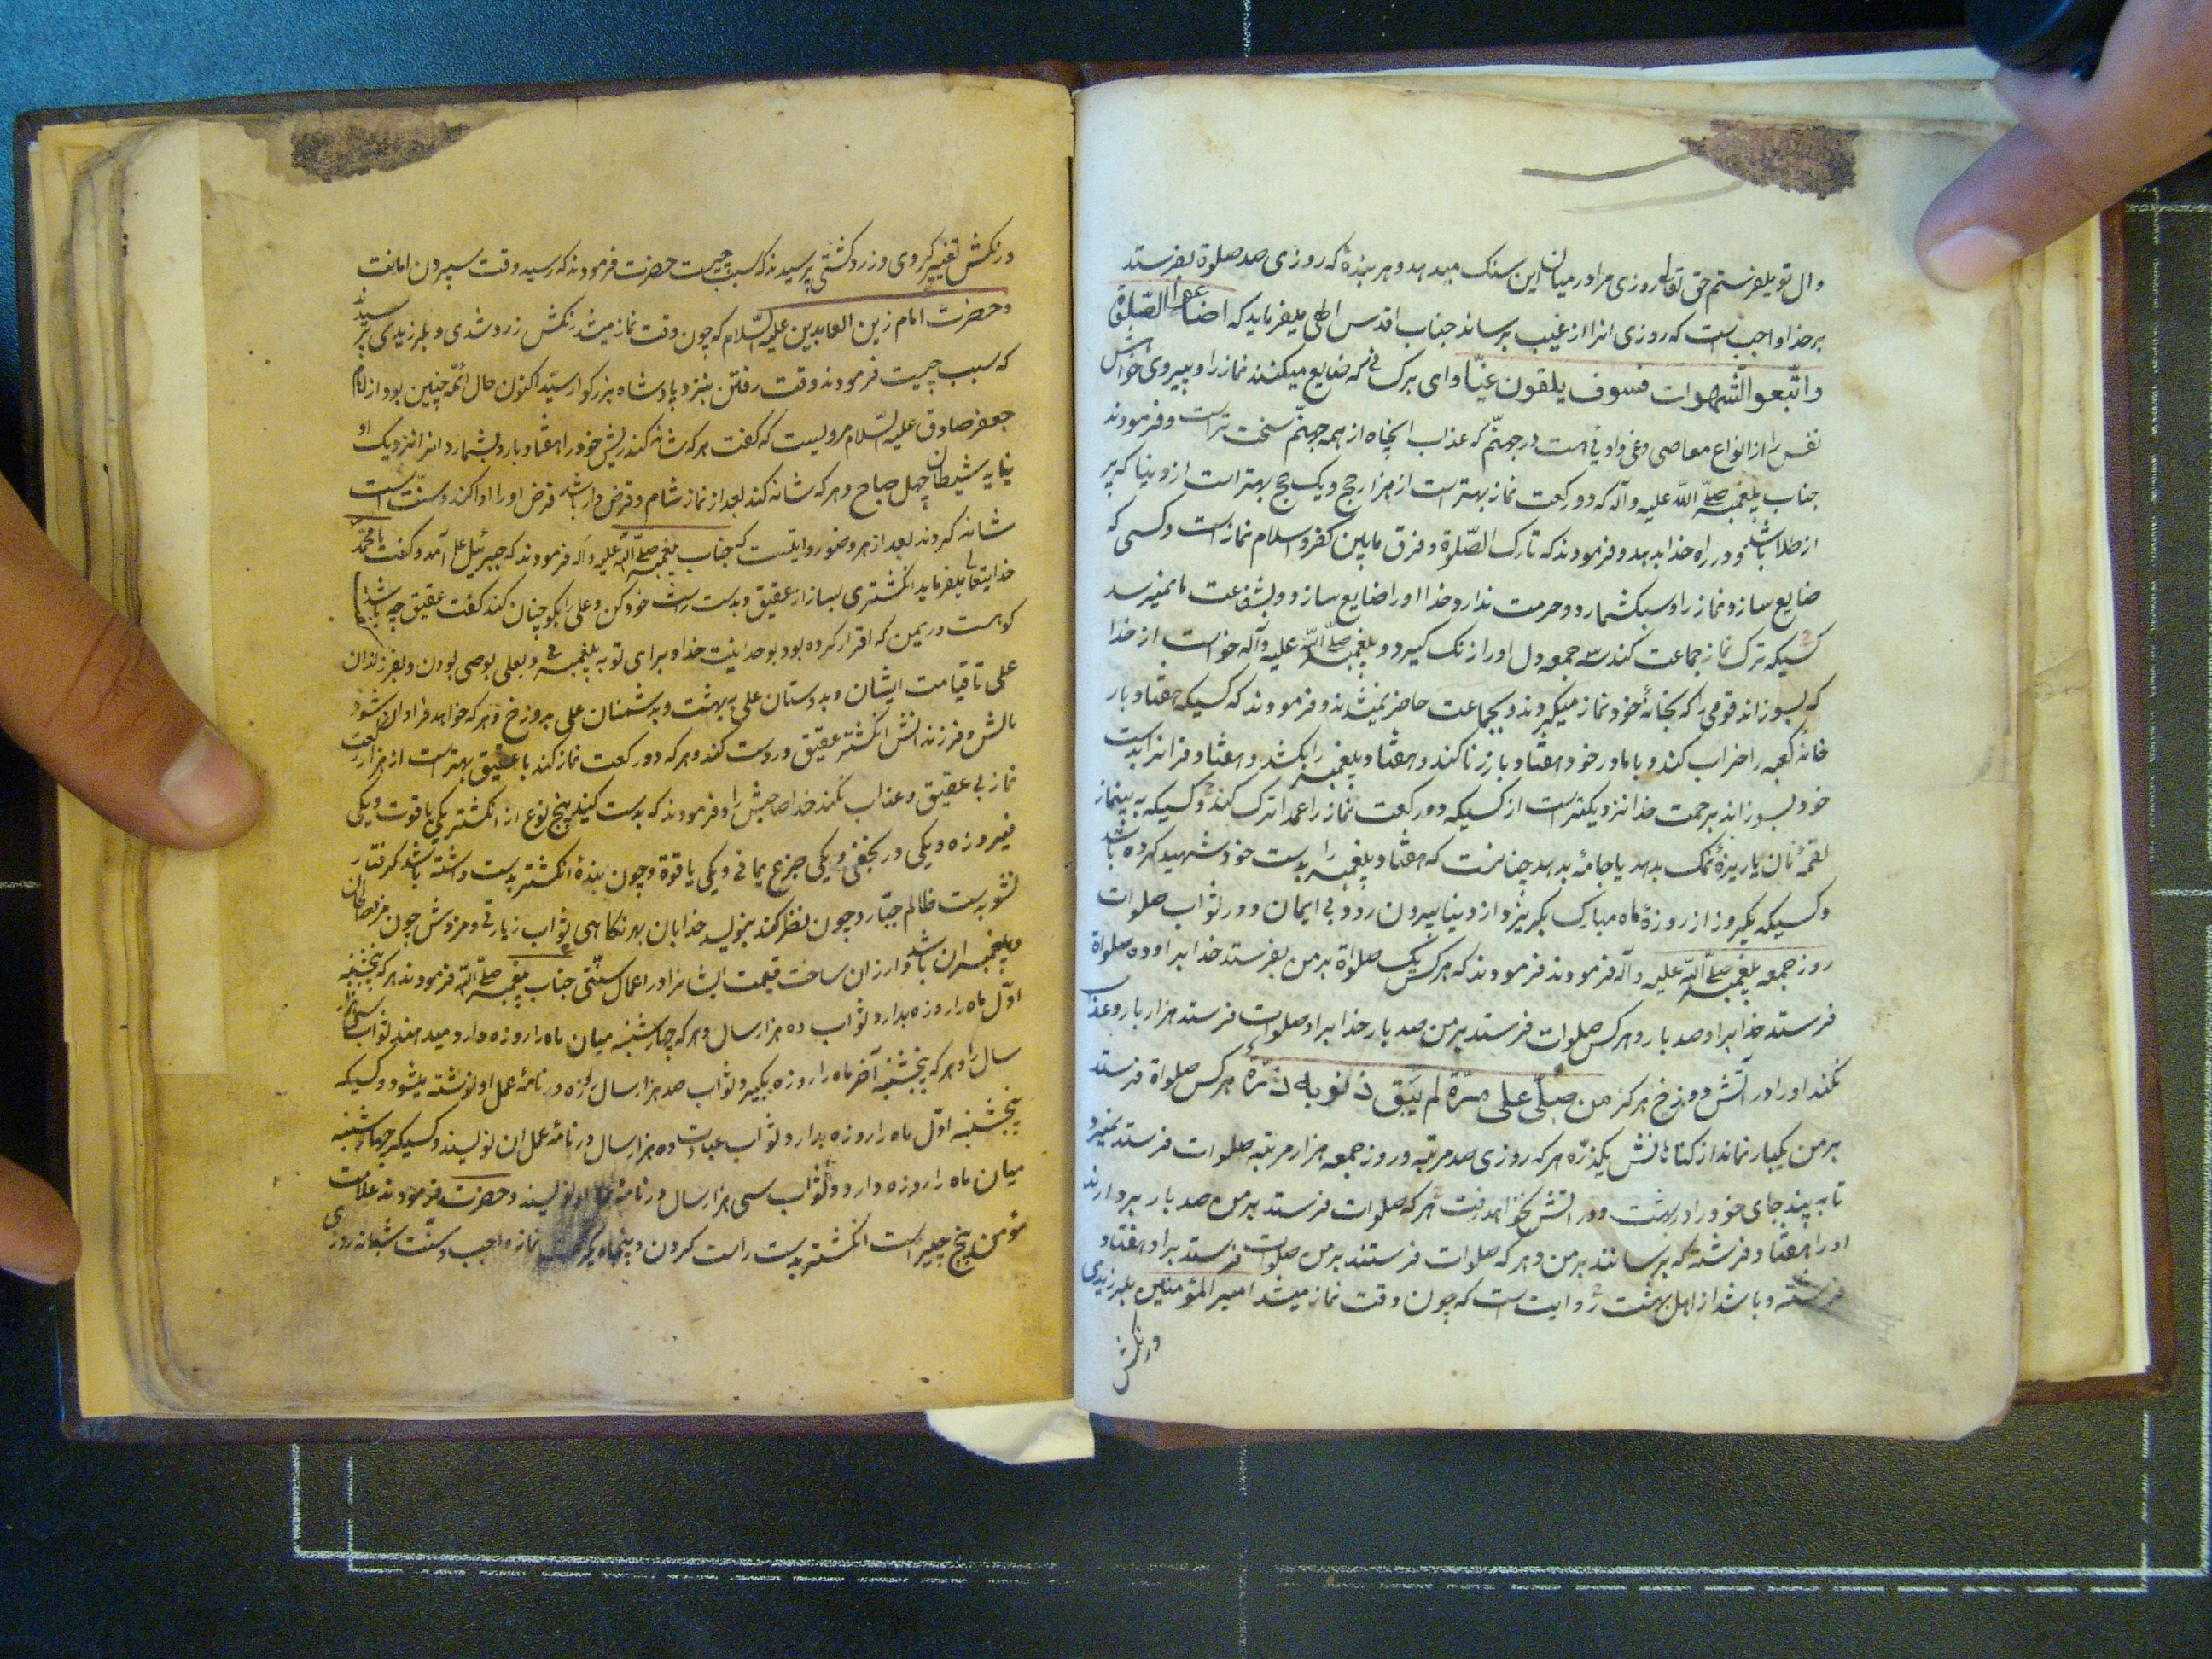 وال تو میفرستم حق تعالی روزی مرا در میان این سنک میدهد و هر بنده که روزی صد صلوة بفرستد
بر خدا واجب است که روزی انرا از غیب برساند جناب اقدس الهی میفرماید که اضاعوا الصّلوة
واتّبعوا الشّهوات فسوف یلقون غیّا وای بر کسانی که ضایع میکنند نماز را و پیروی خواهش
نفس را از انواع معاصی و غی وادی هست در جهنّم که عذاب انجاه از همه جهنّم سخت تر است و فرمودند
جناب پیغمبر صلّی الله علیه وآله که دو رکعت نماز بهتر است از هزار حج و یک حج بهتر است از دنیا که پر
از طلا باشد و در راه خدا بدهد و فرمودند که تارک الصّلوة و فرق مابین کفر و اسلام نماز است و کسی که
ضایع سازد نماز را و سبک شمارد و حرمت ندارد خدا او را ضایع سازد و بشفاعت ما نمیرسد
کسیکه ترک نماز جماعت کند سه جمعه دل او را زنک کیرد و پیغمبر صلّی الله علیه وآله خواست از خدا
که بسوزاند قومی را که بخانهٔ خود نماز میکردند و بجماعت حاضر نمیشدند و فرمودند که کسیکه هفتاد بار
خانهٔ کعبه را خراب کند و با مادر خود هفتاد بار زنا کند و هفتاد پیغمبر را بکشد و هفتاد قرانرا بدست
خود بسوزاند برحمت خدا نزدیکتر است از کسیکه دو رکعت نماز را عمدا ترک کند و کسیکه به بینماز
لقمهٔ نان یا ریزهٔ نمک بدهد یا جامهٔ بدهد چنانست که هفتاد پیغمبر را بدست خود شهید کرده باشد
و کسیکه یکروز از روزهٔ ماه مبارک بکریزد از دنیا بیرون رود بی ایمان و در ثواب صلوات
روز جمعه پیغمبر صلّی الله علیه وآله فرمودند فرمودند که هر کس یک صلواة بر من بفرستد خدا بر او ده صلواة
فرستد خدا بر او صد بار و هر کس صلوات فرستد بر من صد بار خدا بر او صلوات فرستد هزار بار و عذاب
نکند او را در آتش دوزخ هرکز من صلّی علی مرّة لم یبق ذنوبه ذرّة هر کس صلواة فرستد
بر من یکبار نماند از کناهانش یکذرّه هر که روزی صد مرتبه و روز جمعه هزار مرتبه صلوات فرستد نمیرد
تا به بیند جای خود را در بهشت و در اتش نخواهد رفت هر که صلوات فرستد بر من صد بار بر دارند
او را هفتاد فرشته که برسانند بر من و هر که صلوات فرستند بر من صلوات فرستد بر او هفتاد
فرشته و باشد از اهل بهشت روایت است که چون وقت نماز میشد امیر المؤمنین بلرزیدی
ورنکش
ورنکش تغییر کردی و زرد کشتی پرسیدند که سبب چیست حضرت فرمودند که رسید وقت سپردن امانت
و حضرت امام زین العابدین علیه السّلام که چون وقت نماز میشد رنکش زرد شدی و بلرزیدی پرسیدند
که سبب چیست فرمودند وقت رفتن بنزد پادشاه بزرکوار رسید اکنون حال ائمّه چنین بود از امام
جعفر صادق علیه السّلام مرویست که کفت هر که شانه کند ریش خود را هفتاد بار و بشمارد انرا نزدیک او
نیاید شیطان چهل صباح و هر که شانه کند بعد از نماز شام و قرض دار باشد قرض او را ادا کند و سنّت است
شانه کردن بعد از هر وضو روایتست که جناب پیغمبر صلّی الله علیه وآله فرمودند که جبرئیل علی آمد و کفت یا محمّد
خدایتعالی میفرماید انکشتری بساز از عقیق و بدست راست خود کن و علی را بکو چنان کند کفت عقیق چه باشد
کوهست در یمن که اقرار کرده بود بوحدانیت خدا و برای تو به پیغمبری و بعلی بوصی بودن و بفرزندان
علی تا قیامت ایشان و بدوستان علی به بهشت و بدشمنان علی بدوزخ و هر که خواهد فراوان شود
مالش و فرزندانش انکشتر عقیق در دست کند و هر که دو رکعت نماز کند با عقیق بهتر است از هزار رکعت
نماز بی عقیق و عذاب نکند خدا صاحبش را و فرمودند که بدست کنید پنج نوع از انکشتر یکی یاقوت و یکی
فیروزه و یکی در نجفی و یکی جزع یمانی و یکی یاقوة و چون بندهٔ انکشتر بدست داشته باشد کرفتار
نشود بدست ظالم جبّار و چون نظر کند بنویسد خدا بان بهر نکاهی ثواب زیارتی و مزدش چون مرسلان
و پیغمبران باشد و ارزان ساخت قیمت ایشانرا و در اعمال سنّتی جناب پیغمبر صلّی الله فرمودند هر که پنجشنبه
اوّل ماه را روزه بدارد ثواب ده هزار سال و هر که چهارشنبه میان ماه را روزه دارد میدهند ثواب سی هزار
سال را و هر که پنجشنبه آخر ماه را روزه بکیرد ثواب صد هزار سال روزه در نامهٔ عمل او نوشته میشود و کسیکه
پنجشنبه اوّل ماه را روزه بدارد ثواب عبادت ده هزار سال در نامهٔ عمل ان نویسند و کسیکه چهارشنبه
میان ماه را روزه دارد ثواب سی هزار سال در نامهٔ او نویسند و حضرت فرمودند علامت
مؤمن پنج چیز است انکشتر بدست راست کردن و پنجاه یکرکعت نماز واجب و سنّت شبانه روزی